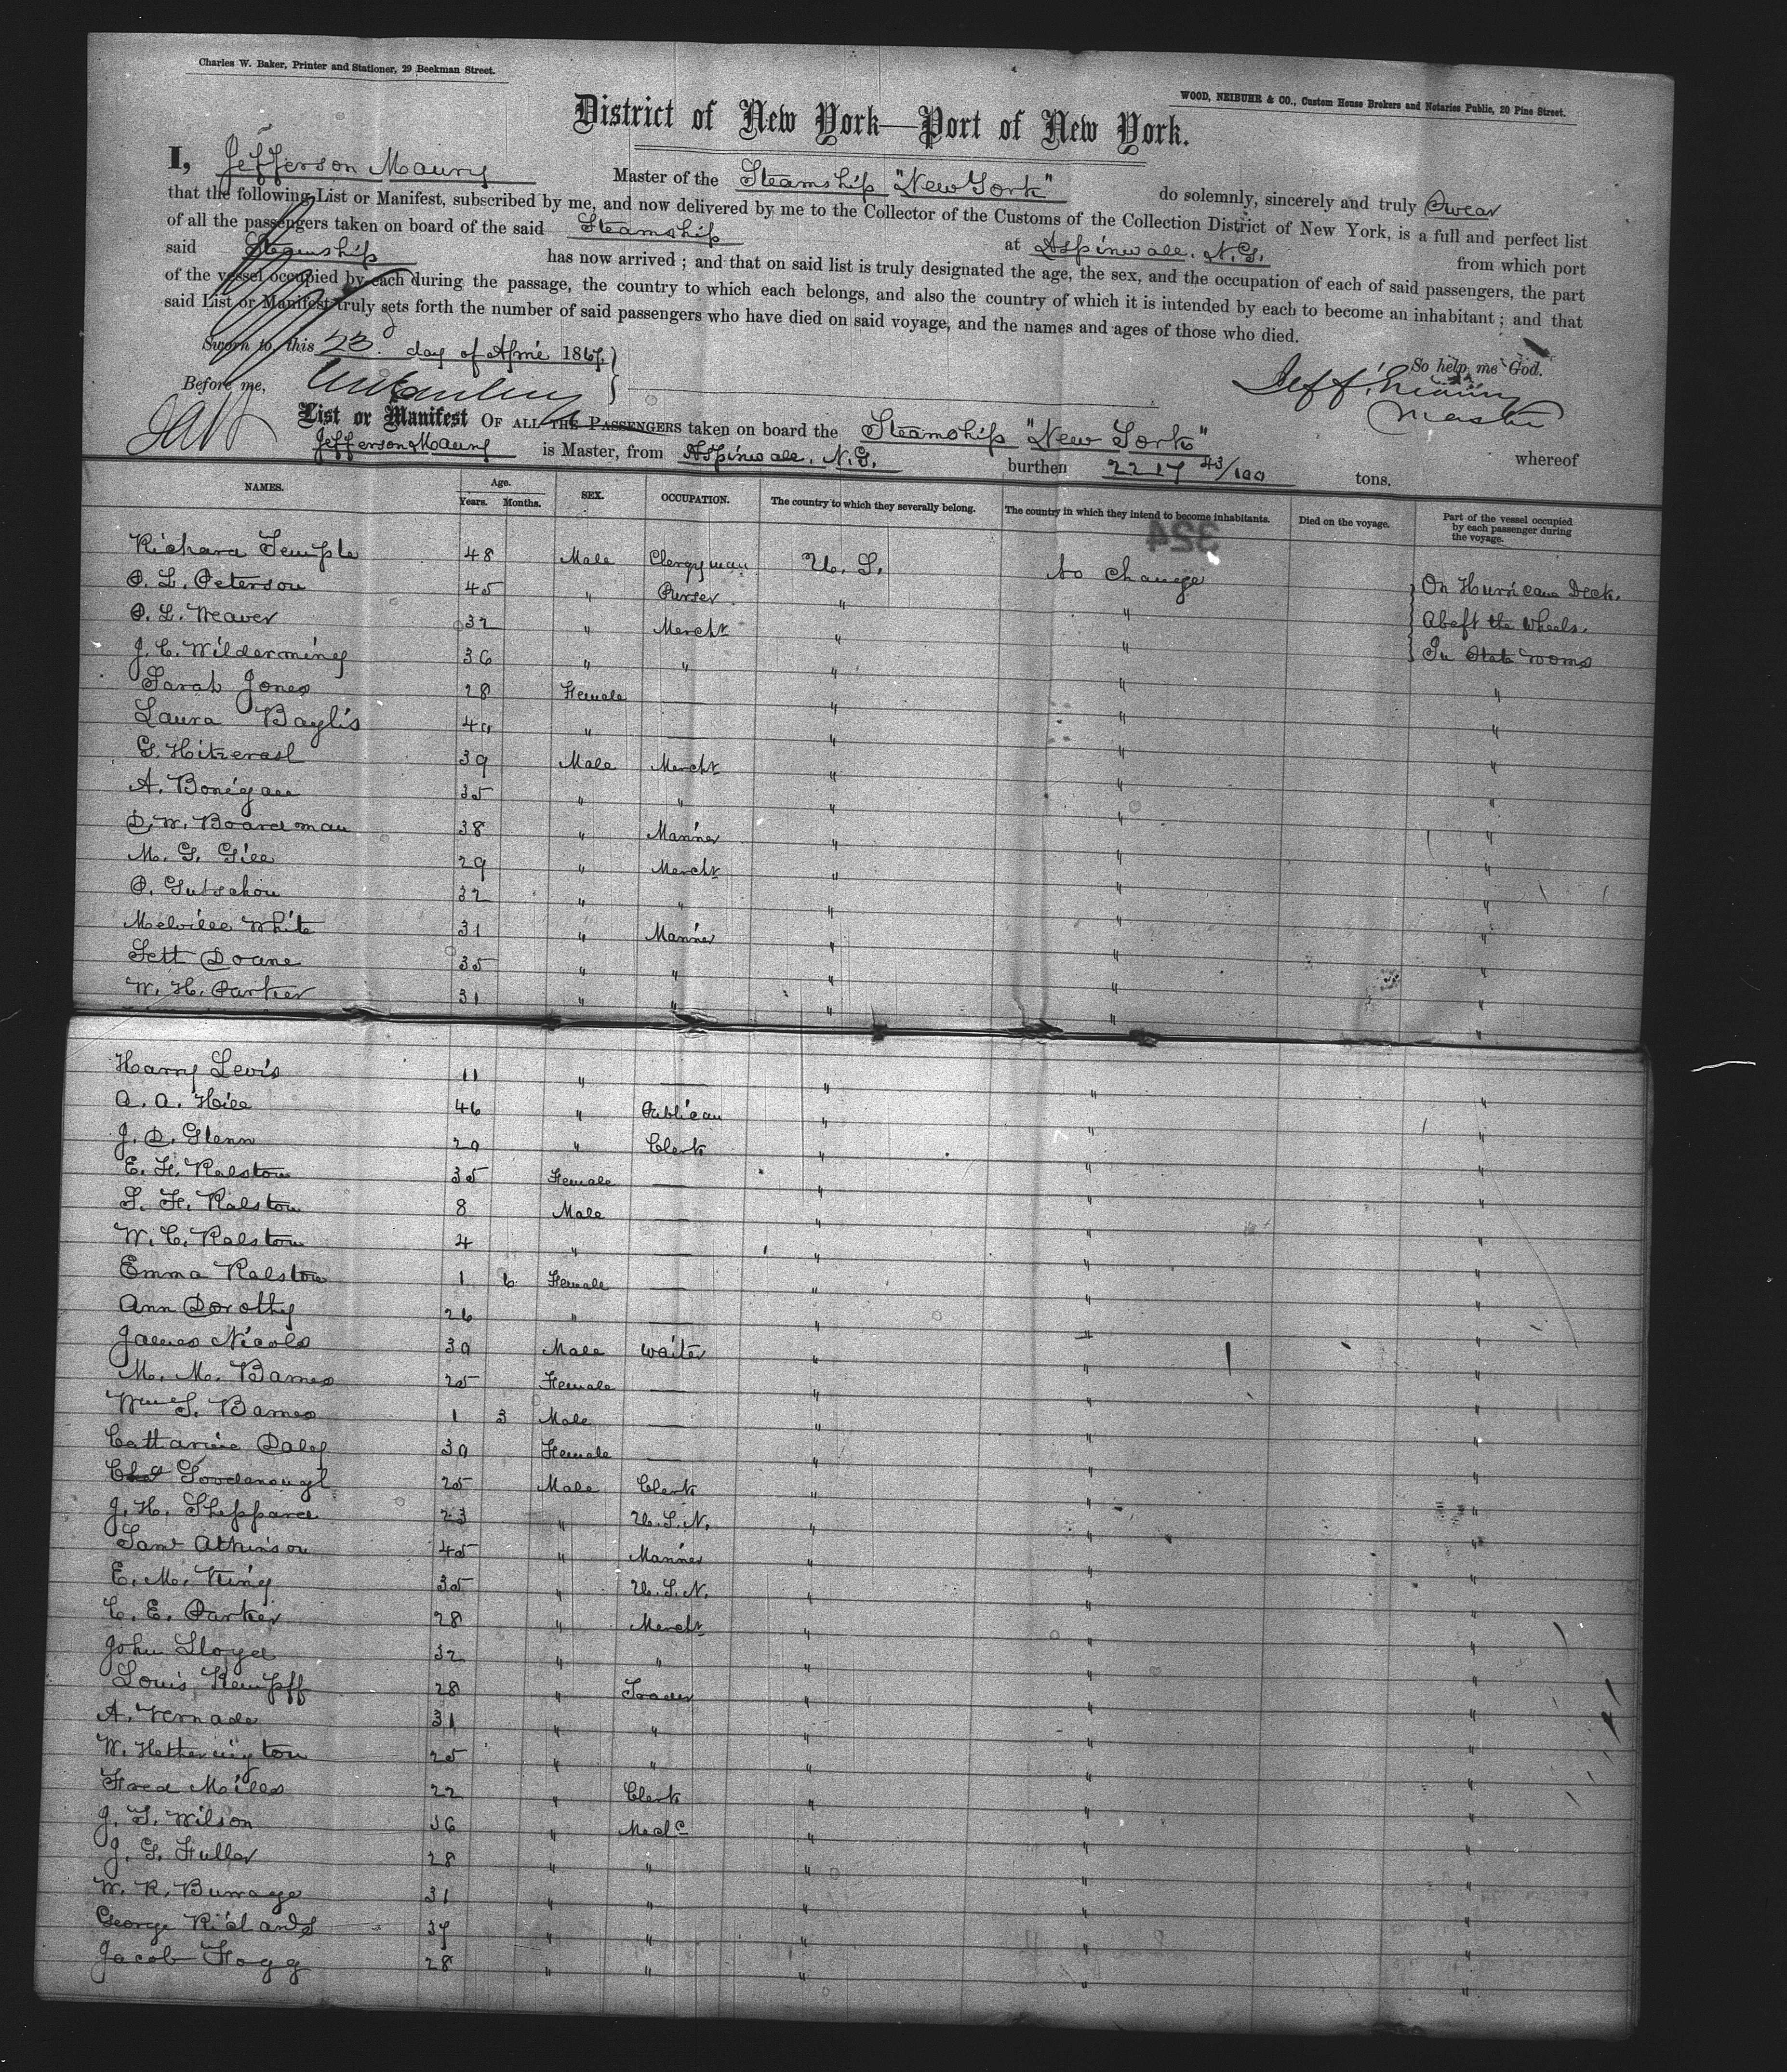 Charles W. Baker, Printer and Stationer, 29 Beekman Street.
WOOD, NEIBUHR & CO., Custom House Brokers and Notaries Public, 20 Pine Street.
District of New York—Port of New York.
I, Jefferson Maury Master of the Steamship "New York" do solemnly, sincerely and truly Swear
that the following List or Manifest, subscribed by me, and now delivered by me to the Collector of the Customs of the Collection District of New York, is a full and perfect list
of all the passengers taken on board of the said Steamship at Aspinwall, N.G. from which port
said Steamship has now arrived; and that on said list is truly designated the age, the sex, and the occupation of each of said passengers, the part
of the vessel occupied by each during the passage, the country to which each belongs, and also the country of which it is intended by each to become an inhabitant; and that
said List or Manifest truly sets forth the number of said passengers who have died on said voyage, and the names and ages of those who died.
Sworn to, this 23. day of April 1867. So help me God.
Before me, Jeff. Maury
Master
List or Manifest OF ALL THE PASSENGERS taken on board the Steamship "New York" whereof
Jefferson Maury is Master, from Aspinwall, N.G. burthen 2217 43/100 tons.
NAMES. Age. Years. Months. SEX. OCCUPATION. The country to which they severally belong. The country in which they intend to become inhabitants. Died on the voyage. Part of the vessel occupied by each passenger during the voyage.
354
Richard Temple 48 Male Clergyman U. S. No change
P. L. Peterson 45 " Purser " " On Hurricane Deck.
P. L. Weaver 32 " Mercht " " Abaft the wheels.
J. C. Wilderming 36 " " " " In State rooms
Sarah Jones 28 Female — " " "
Laura Baylis 40 " — " " "
G. Hitzerasl 39 Male Mercht " " "
A. Bonigan 35 " " " " "
D. W. Boardman 38 " Mariner " " "
M. G. Gill 29 " Mercht " " "
P. Gutschou 32 " " " " "
Melville White 31 " Mariner " " "
Sett Doane 35 " " " " "
W. H. Parker 31 " " " " "
Harry Levis 11 " — " " "
A. A. Hill 46 " Publican " " "
J. D. Glenn 29 " Clerk " " "
E. F. Ralston 35 Female — " " "
S. F. Ralston 8 Male — " " "
W. C. Ralston 4 " — " " "
Emma Ralston 1 6 Female — " " "
Ann Dorothy 26 " — " " "
James Nicols 30 Male Waiter " " "
M. M. Barnes 25 Female — " " "
Wm S. Barnes 1 3 Male — " " "
Catharine Daley 30 Female — " " "
Chas Goodenough 25 Male Clerk " " "
J. H. Sheppard 23 " U.S.N. " " "
Saml Atkinson 45 " Mariner " " "
E. M. King 35 " U.S.N. " " "
C. E. Parker 28 " Mercht " " "
John Lloyd 32 " " " " "
Louis Kempff 28 " Trader " " "
A. Vernade 31 " " " " "
W. Hetherington 25 " " " " "
Fred Miles 22 " Clerk " " "
J. S. Wilson 36 " Mechc " " "
J. G. Fuller 28 " " " " "
W. R. Burrage 31 " " " " "
George Richards 37 " " " " "
Jacob Fogg 28 " " " " "